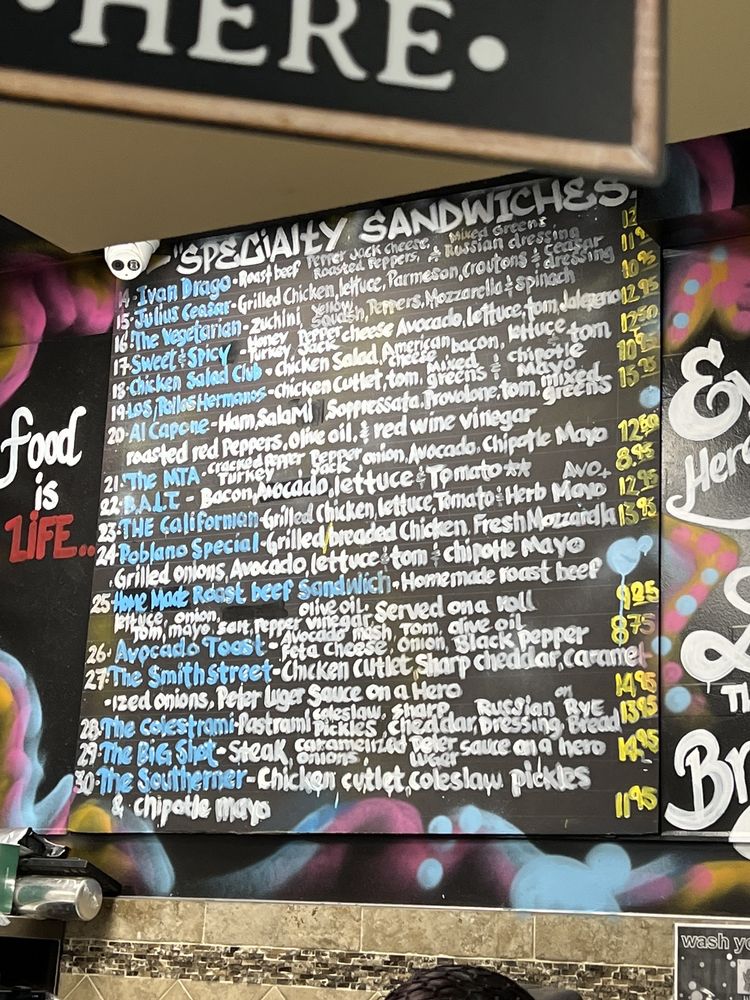 ·HERE·
"SPECIALTY SANDWICHES"
14·Ivan Drago·Roast beef Pepper Jack cheese, Mixed Greens
Roasted Peppers, & Russian dressing
15·Julius Ceasar-Grilled Chicken, lettuce, Parmesan, croutons & ceasar dressing 11
16·The Vegetarian-Zuchini yellow squash, Peppers, Mozzarella & spinach 10.95
17·Sweet & SPICY - Honey Turkey, Pepper Jack cheese Avocado, lettuce, tom, Jalapeno 12.95
18·Chicken Salad Club-Chicken Salad, American cheese bacon, lettuce, tom 12.50
19·Los Pollos Hermanos-chicken cutlet, tom, mixed greens & chipotle mayo 10.95
20·Al Capone-Ham, Salami, Soppressata, Provolone, tom, mixed greens 15.95
roasted red Peppers, Olive oil, & red wine vinegar
21·The MTA - cracked Pepper Turkey, Pepper Jack onion, Avocado, Chipotle Mayo 12.50
22·B.A.L.T - Bacon, Avocado, lettuce & Tomato** 8.95
23·THE Californian-Grilled Chicken, lettuce, Tomato & Herb Mayo Avo, 12.95
24·Poblano Special-Grilled/breaded Chicken, Fresh Mozzarella 13.95
Grilled onions, Avocado, lettuce & tom & chipotle Mayo
25·Home Made Roast beef Sandwich-Homemade roast beef
lettuce, onion, olive oil, Served on a roll 9.25
Tom, mayo, salt, Pepper vinegar,
26·Avocado Toast-Avocado mash, Tom, olive oil 8.75
Feta cheese, onion, Black pepper
27·The Smith Street-Chicken Cutlet, Sharp cheddar, Caramel
-ized onions, Peter Luger Sauce on a Hero 14.95
28·The Colestrami-Pastrami coleslaw, sharp Russian on RYE 13.95
Pickles, cheddar, Dressing, Bread
29·The BIG Shot-Steak, caramelized onions, Peter Luger sauce on a hero 14.95
30·The Southerner-Chicken cutlet, coleslaw pickles
& chipotle mayo 11.95
food
is
LIFE..
Her
Br
wash yo